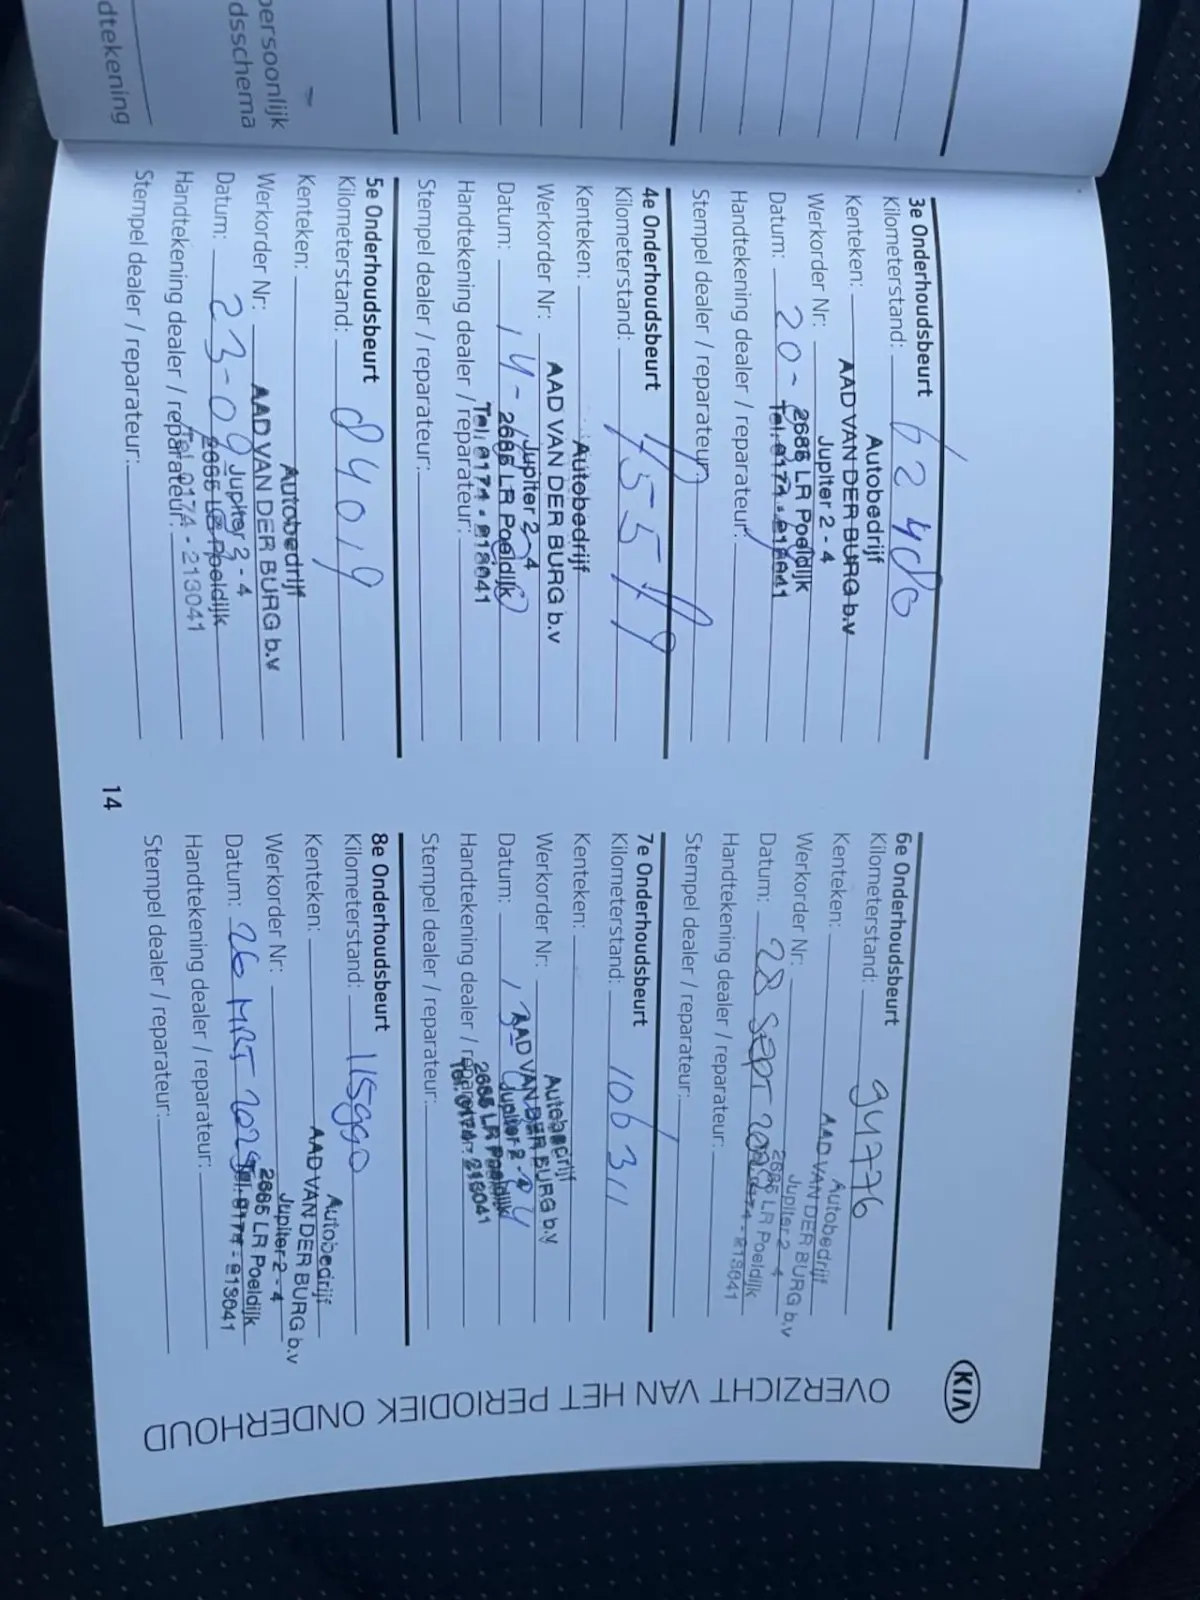 persoonlijk
dsschema
dtekening
KIA
OVERZICHT VAN HET PERIODIEK ONDERHOUD
3e Onderhoudsbeurt
Kilometerstand: 62480
Kenteken:
Werkorder Nr:
Datum: 20-
Handtekening dealer / reparateur:
Stempel dealer / reparateur:
Autobedrijf
AAD VAN DER BURG b.v
Jupiter 2 - 4
2685 LR Poeldijk
Tel. 0174 - 213041
4e Onderhoudsbeurt
Kilometerstand:
Kenteken:
Werkorder Nr:
Datum: 14-
Handtekening dealer / reparateur:
Stempel dealer / reparateur:
Autobedrijf
AAD VAN DER BURG b.v
Jupiter 2 - 4
2685 LR Poeldijk
Tel. 0174 - 213041
5e Onderhoudsbeurt
Kilometerstand: 84019
Kenteken:
Werkorder Nr:
Datum: 23-09
Handtekening dealer / reparateur:
Stempel dealer / reparateur:
Autobedrijf
AAD VAN DER BURG b.v
Jupiter 2 - 4
2685 LR Poeldijk
Tel. 0174 - 213041
6e Onderhoudsbeurt
Kilometerstand: 94776
Kenteken:
Werkorder Nr:
Datum: 28 Sept
Handtekening dealer / reparateur:
Stempel dealer / reparateur:
Autobedrijf
AAD VAN DER BURG b.v
Jupiter 2 - 4
2685 LR Poeldijk
0174 - 213041
7e Onderhoudsbeurt
Kilometerstand: 106311
Kenteken:
Werkorder Nr:
Datum:
Handtekening dealer / reparateur:
Stempel dealer / reparateur:
Autobedrijf
AAD VAN DER BURG b.v
Jupiter 2 - 4
2685 LR Poeldijk
Tel. 0174 - 213041
8e Onderhoudsbeurt
Kilometerstand: 115990
Kenteken:
Werkorder Nr:
Datum: 26 MRT 2025
Handtekening dealer / reparateur:
Stempel dealer / reparateur:
Autobedrijf
AAD VAN DER BURG b.v
Jupiter 2 - 4
2685 LR Poeldijk
Tel. 0174 - 213041
14